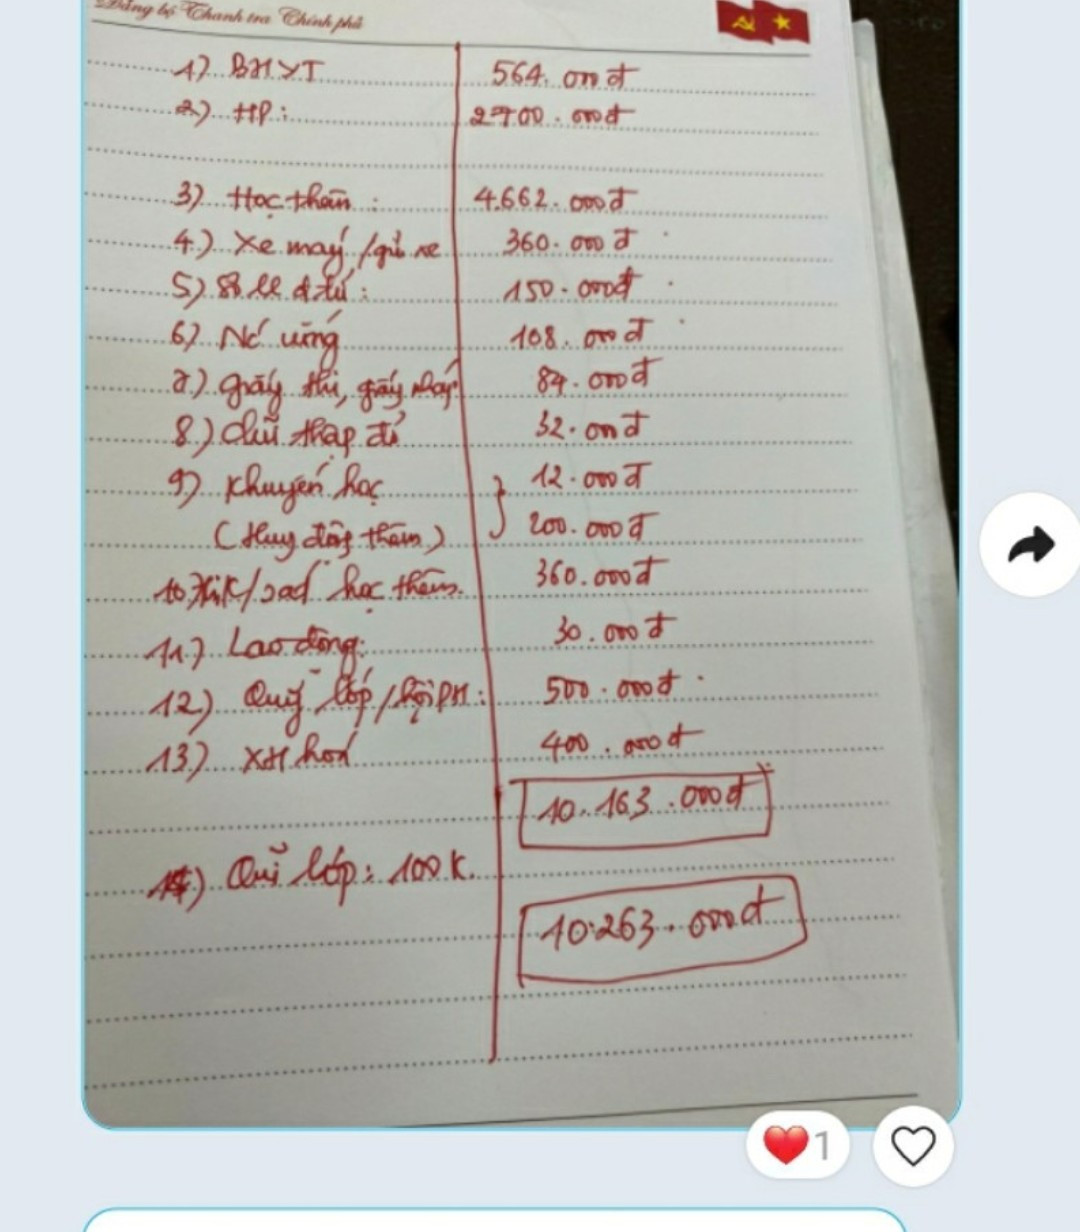 Đảng bộ Thanh tra Chính phủ
1) BHYT 564.000đ
2) HP: 2700.000đ
3) Học thêm: 4.662.000đ
4.) Xe máy/gửi xe 360.000đ
5) Sổ LL đ.tử: 150.000đ
6) Nc uống 108.000đ
7.) giấy thi, giấy nháp 84.000đ
8.) Chữ thập đỏ 32.000đ
9) Khuyến học 12.000đ
(Huy động thêm) 200.000đ
10) học thêm. 360.000đ
11.) Lao động: 30.000đ
12) Quỹ lớp/hội PH: 500.000đ
13) XH hoá 400.000đ
10.163.000đ
14) Quĩ lớp: 100K.
10.263.000đ
1